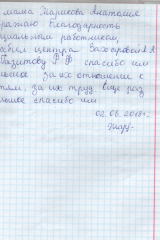 мама Парикова Анатолия
ражаю благодарность
циальным работникам,
центра Захаровой А
Вазитову Р Ф спасибо им
за их отношение к
тям, за их труд, еще раз
спасибо им
02.08.2018г.